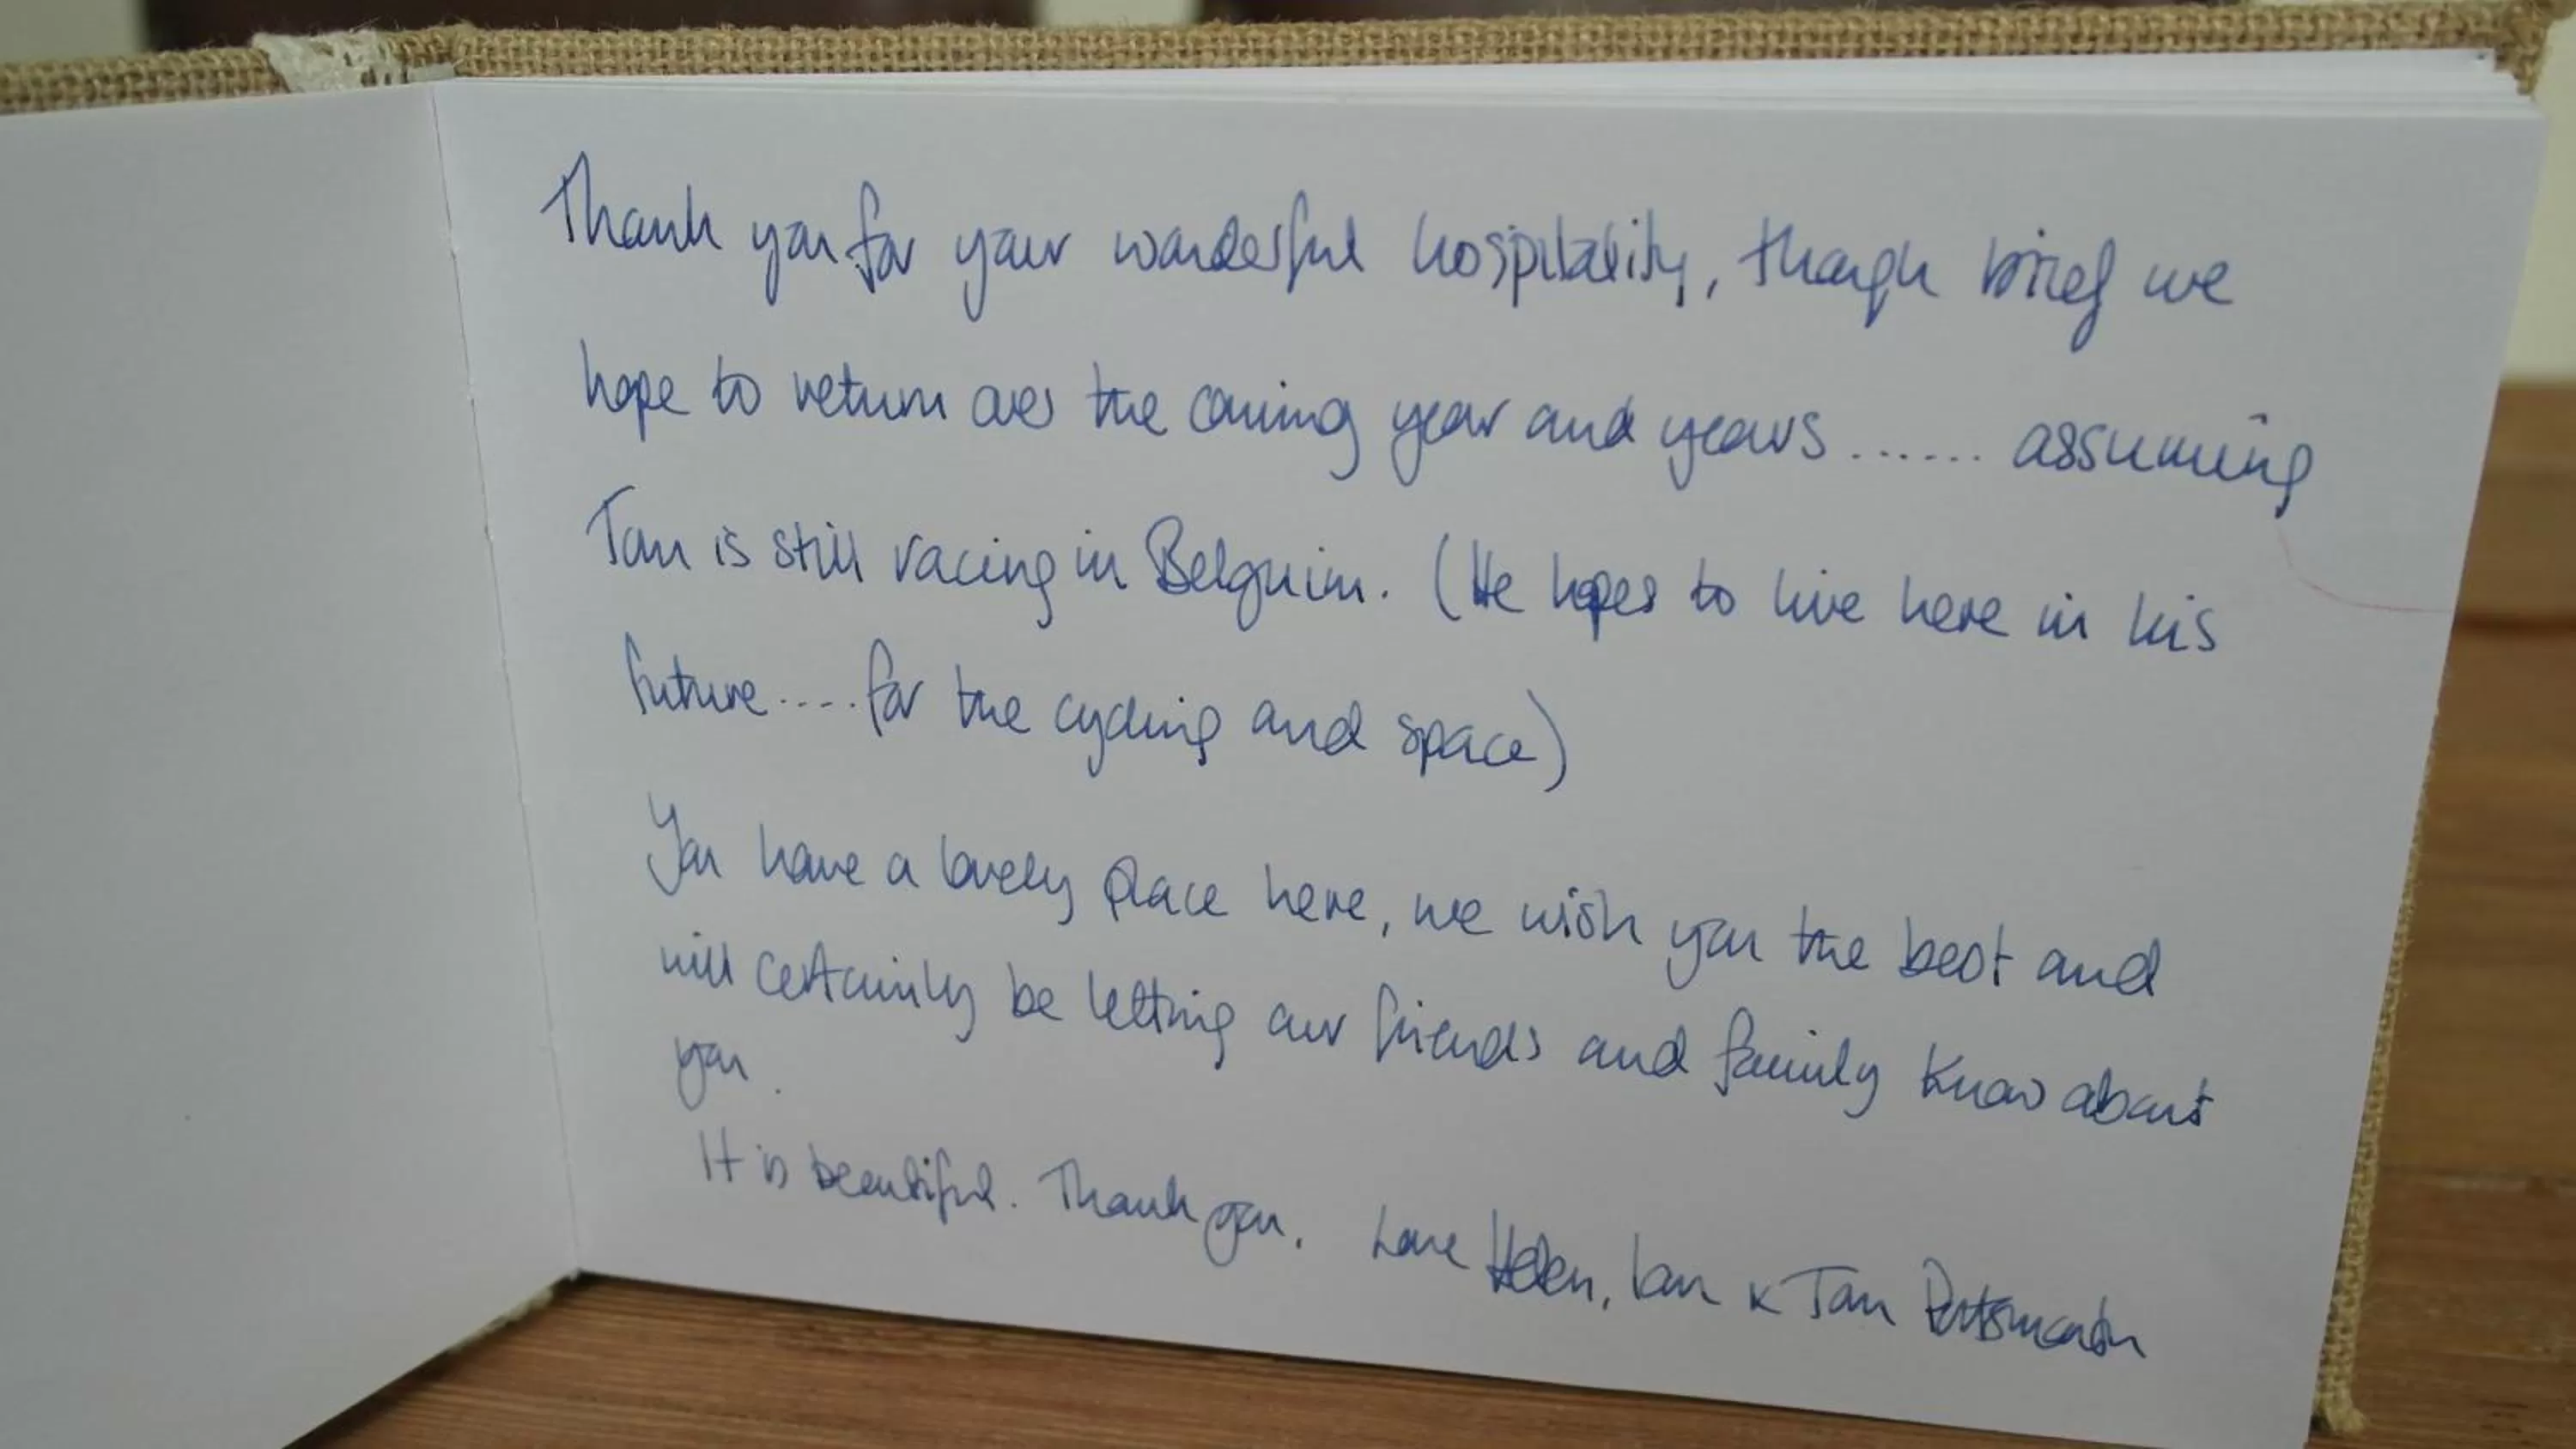 Thank you for your wonderful hospitality, though brief we
hope to return over the coming year and years ...... assuming
Tan is still racing in Belguim. (He hopes to live here in his
future .... for the cycling and space)
You have a lovely place here, we wish you the best and
will certainly be letting our friends and family know about
you.
It is beautiful. Thank you. Love Helen, Ian & Tan Portsmouth